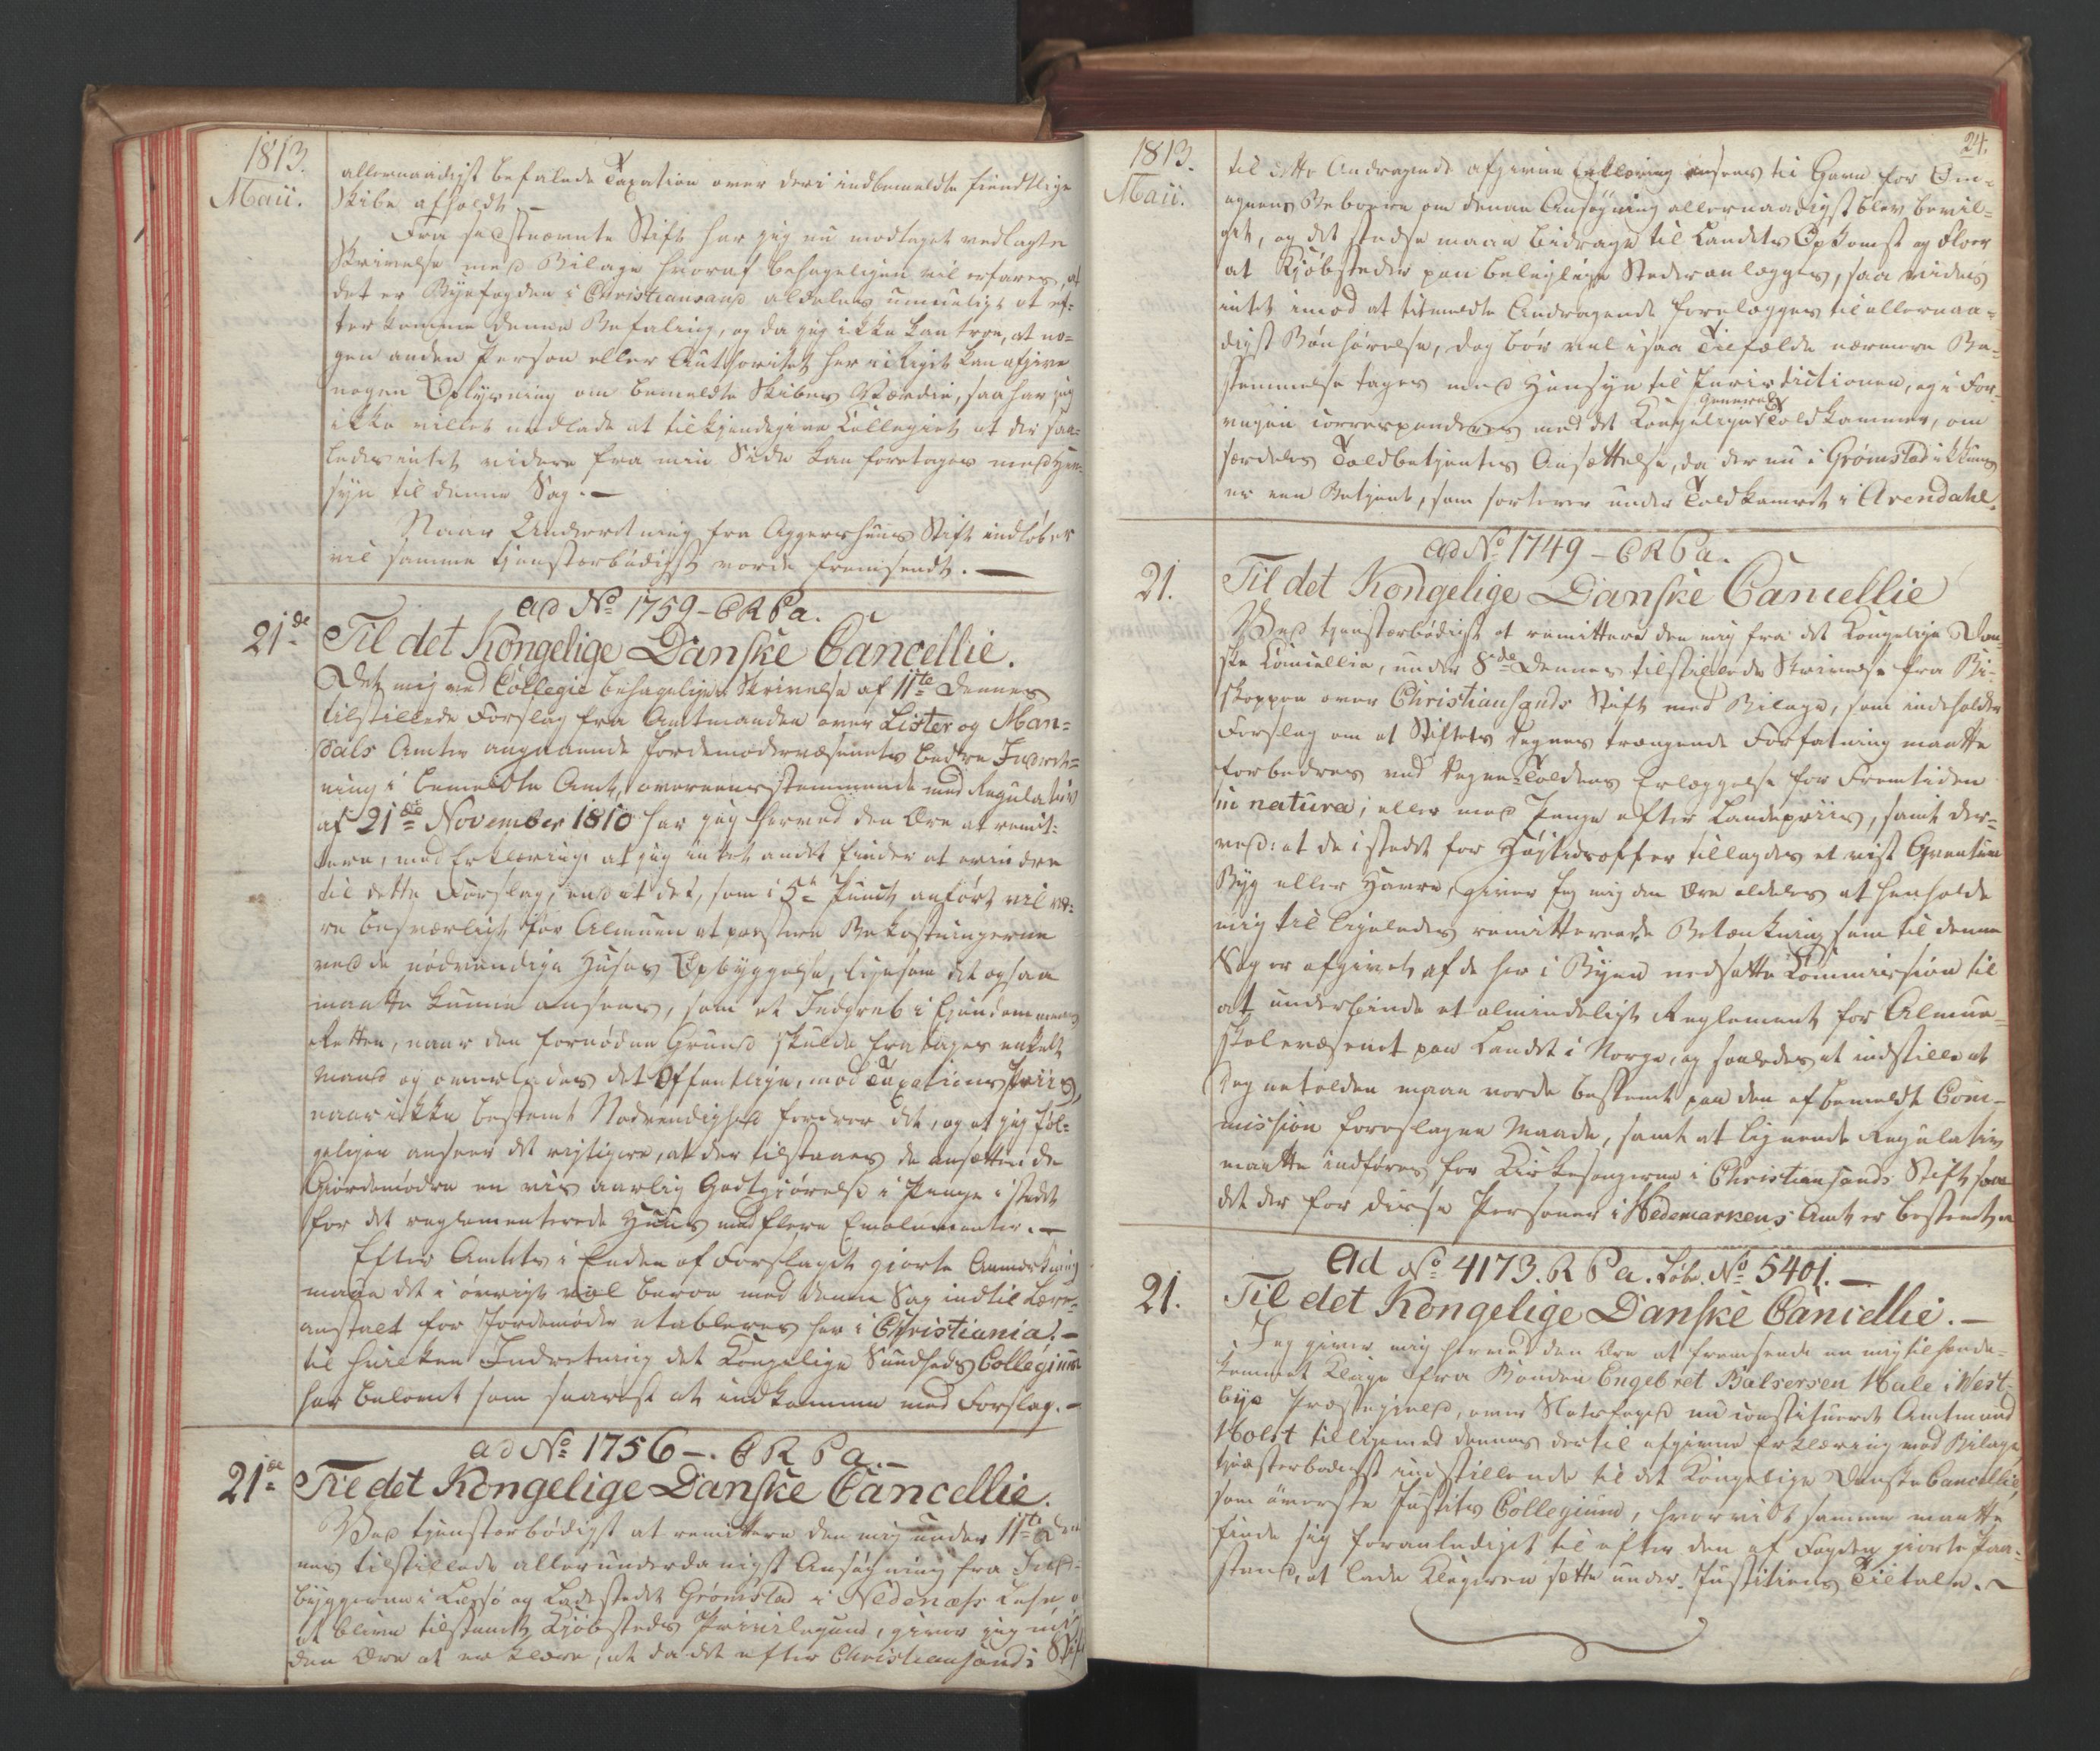 1813.
Maii.
allernaadigst befalede Taxation over deri indbemeldte fiendtlige
Skibe afholdt. –
Fra sidstnævnte Stift har jeg nu modtaget vedlagte
Skrivelse med Bilage hvoraf behageligen vil erfares, at
det er Byefogden i Christiansand aldeles umueligt at ef-
terkomme denne Befaling, og da jeg ikke kan troe, at no-
gen anden Person eller Authoritet her i Riget kan afgive
nogen Oplysning om bemeldte Skibes Værdie, saa har jeg
ikke villet undlade at tilkjendegive Collegiet at der saa-
ledes intet videre fra min Side kan foretages med Hen-
syn til denne Sag. –
Naar Underretning fra Aggershuus Stift indløber
vil samme tjenstærbødigst vorde fremsendt. –
ad No 1759 – C R P a.
21de Til det Kongelige Danske Cancellie.
Det mig ved Collegie behagelige Skrivelse af 11te dennes
tilstillede Forslag fra Amtmanden over Lister og Man-
dals Amter angaaende Jordemodervæsenets bedre Indret-
ning i bemeldte Amt, overeensstemmende med Regulativ
af 21de November 1810 har jeg herved den Ære at remit-
tere, med Erklæring at jeg intet andet finder at erindre
til dette Forslag, end at det, som i 5te Punct anført vil væ-
re besværligt for Almuen at præstere Bekostningerne
ved de nødvendige Huses Opbyggelse, ligesom det ogsaa
maatte kunne ansees, som et Indgreb i Eiendommens
Retten, naar den fornødne Grund skulde fratages enkelt
Mand og overlades det Offentlige, mod Taxations Priis,
naar ikke bestemt Nødvendighed fordrer det, og at jeg føl-
geligen anseer det rigtigere, at der tilstaaes de ansættende
Giordemødre en vis aarlig Godtgiørelse i Penge i stedet
for det reglementerede Huus med flere Emolumenter. –
Efter Amtets i Enden af Forslaget giorte Anmærkning
maae det i øvrigt vel beroe med denne Sag indtil Lære-
anstalt for Jordemødre etableres her i Christiania. –
til hvilken Indretning det Kongelige Sundheds Collegium
har belovet som snarest at indkomme med Forslag. –
ad No 1756 –. C R P a. –
21de Til det Kongelige Danske Cancellie.
Ved tjenstærbødigst at remittere den mig under 11te Den-
nes tilstillede allerunderdanigst Ansøgning fra Ind-
byggerne i Ladestedet Grømstad i Nedenæs Lehn, o
at blive tilstaaet Kjøbsteds Privilegund, giver jeg mi
den Ære at erklære, at da det efter Christiansands Stift
24.
1813.
Maii.
til dette Andragende afgivne Erklæring ansees til Gavn for Om-
egnens Beboere om denne Ansøgning allernaadigst blev bevil-
get, og det stedse maae bidrage til Landets Opkomst og Floer
at Kjøbsteder paa beleilige Steder anlægges, saa videes
intet imod at bemeldte Andragende forelægges til allernaa-
digst Bønhørelse, dog bør vel i saa Tilfælde nærmere Be-
stemmelse tages med Hensyn til Jurisdictionen, og i For-
veien corresponderes med det Kongelige General Toldkammer, om
særdeles Toldbetjentes Ansættelse, da der nu i Grømstad ikkuns
er een Betjent, som sorterer under Toldkammeret i Arendahl.
ad No 1749 – C R P a.
21. Til det Kongelige Danske Cancellie
Ved tjenstærbødigst at remittere den mig fra det Kongelige Dan-
ske Cancellie, under 8de Dennes tilstillede Skrivelse fra Bi-
skoppen over Christiansands Stift med Bilage, som indeholder
Forslag om at Stiftets Degnes trængende Forfatning maatte
forbedres ved Degne-Toldens Erlæggelse for Fremtiden
in natura, eller med Penge efter Landepriis, samt der-
ved: at de i stedet for Høitidsoffer tillagdes et vist Qvantum
Byg eller Havre, giver jeg mig den Ære aldeles at henholde
mig til ligeledes remitterende Betænkning som til denne
Sag er afgivet af de her i Byen nedsatte Commission til
at underfinde et almindeligt Reglement for Almue-
skolevæsenet paa Landet i Norge, og saaledes at indstille at
Degnetolden maae vorde bestemt paa den af bemeldte Com-
mission foreslagne Maade, samt at lignende Regulativ
maatte indføres for Kirkesangerne i Christiansands Stift som
det der for disse Personer i Hedemarkens Amt er bestemt.
Ad No 4173. R P a. Løbe No 5401. –
21. Til det Kongelige Danske Cancellie. –
Jeg giver mig herved den Ære at fremsende en mig tilhænde-
kommet Klage fra Bonden Engebret Balsersen Hale i West-
bye Præstegield, over Foged nu constitueret Amtmand
Holst tilligemed dennes dertil afgivne Erklæring med Bilage,
tjenstærbødigst indstillende til det Kongelige Danske Cancellie,
som øverste Justits Collegium, hvorvidt samme maatte
finde sig foranlediget til efter den af Fogden giorte Paa-
stand, at lade Klageren sætte under Justitiens Tiltale. –